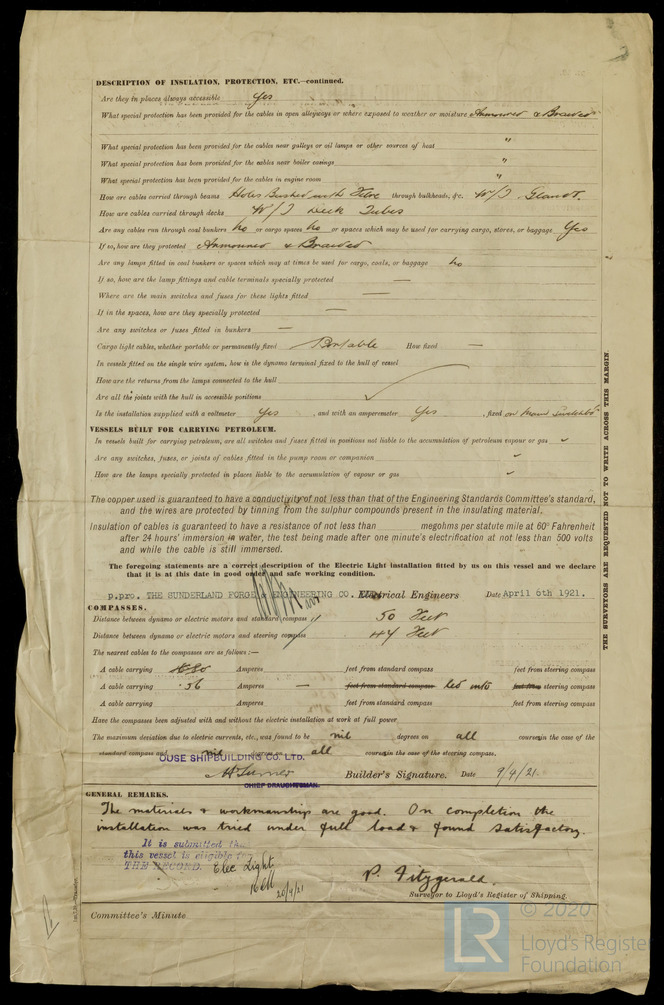 DESCRIPTION OF INSULATION, PROTECTION, ETC.—continued.
Are they in places always accessible Yes
What special protection has been provided for the cables in open alleyways or where exposed to weather or moisture Armoured & Braided
What special protection has been provided for the cables near galleys or oil lamps or other sources of heat "
What special protection has been provided for the cables near boiler casings "
What special protection has been provided for the cables in engine room "
How are cables carried through beams Holes Bushed with Fibre through bulkheads, &c. W/T Glands.
How are cables carried through decks W/T Deck Tubes
Are any cables run through coal bunkers No or cargo spaces No or spaces which may be used for carrying cargo, stores, or baggage Yes
If so, how are they protected Armoured & Braided
Are any lamps fitted in coal bunkers or spaces which may at times be used for cargo, coals, or baggage No
If so, how are the lamp fittings and cable terminals specially protected —
Where are the main switches and fuses for these lights fitted —
If in the spaces, how are they specially protected —
Are any switches or fuses fitted in bunkers —
Cargo light cables, whether portable or permanently fixed Portable How fixed —
In vessels fitted on the single wire system, how is the dynamo terminal fixed to the hull of vessel
How are the returns from the lamps connected to the hull
Are all the joints with the hull in accessible positions
Is the installation supplied with a voltmeter Yes , and with an amperemeter Yes , fixed on Main Switchbd
VESSELS BUILT FOR CARRYING PETROLEUM.
In vessels built for carrying petroleum, are all switches and fuses fitted in positions not liable to the accumulation of petroleum vapour or gas ✓
Are any switches, fuses, or joints of cables fitted in the pump room or companion ✓
How are the lamps specially protected in places liable to the accumulation of vapour or gas ✓
The copper used is guaranteed to have a conductivity of not less than that of the Engineering Standards Committee's standard,
and the wires are protected by tinning from the sulphur compounds present in the insulating material.
Insulation of cables is guaranteed to have a resistance of not less than megohms per statute mile at 60° Fahrenheit
after 24 hours' immersion in water, the test being made after one minute's electrification at not less than 500 volts
and while the cable is still immersed.
The foregoing statements are a correct description of the Electric Light installation fitted by us on this vessel and we declare
that it is at this date in good order and safe working condition.
p.pro. THE SUNDERLAND FORGE & ENGINEERING CO. Electrical Engineers Date April 6th 1921.
COMPASSES.
Distance between dynamo or electric motors and standard compass 50 Feet
Distance between dynamo or electric motors and steering compass 44 Feet
The nearest cables to the compasses are as follows:—
A cable carrying Amperes feet from standard compass feet from steering compass
A cable carrying .56 Amperes — feet from standard compass led into feet from steering compass
A cable carrying Amperes feet from standard compass feet from steering compass
Have the compasses been adjusted with and without the electric installation at work at full power
The maximum deviation due to electric currents, etc., was found to be nil degrees on all course in the case of the
standard compass and nil degrees on all course in the case of the steering compass.
OUSE SHIPBUILDING CO. LTD.
Builder's Signature. Date 9/4/21.
CHIEF DRAUGHTSMAN.
GENERAL REMARKS.
The materials & workmanship are good. On completion the
installation was tried under full load & found satisfactory.
It is submitted that
this vessel is eligible
THE RECORD. Elec Light
20/4/21
P. Fitzgerald.
Surveyor to Lloyd's Register of Shipping.
Committee's Minute
THE SURVEYORS ARE REQUESTED NOT TO WRITE ACROSS THIS MARGIN.
LR
© 2020
Lloyd's Register
Foundation